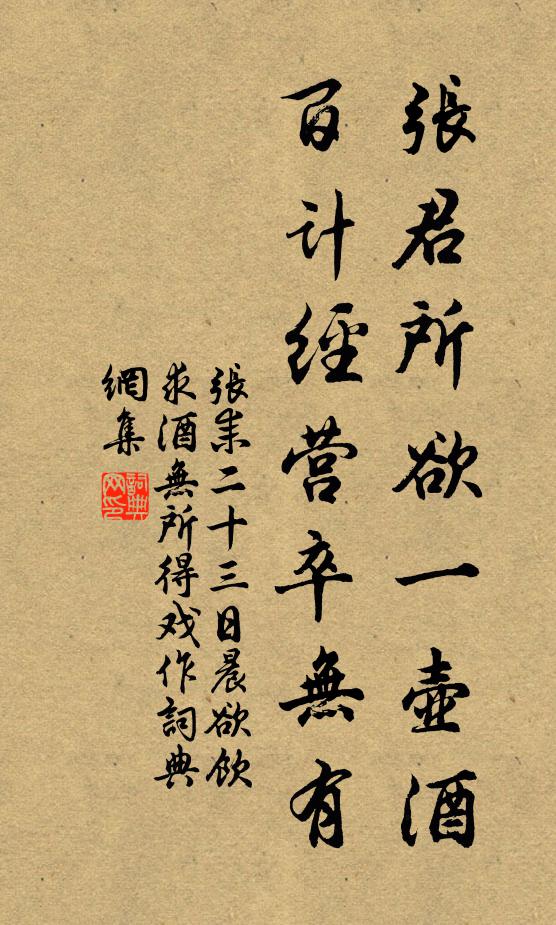 張君所欲一壺酒
百计經营卒無有
張耒二十三日晨欲飲
求酒無所得戏作詞典
網集
詞典網印